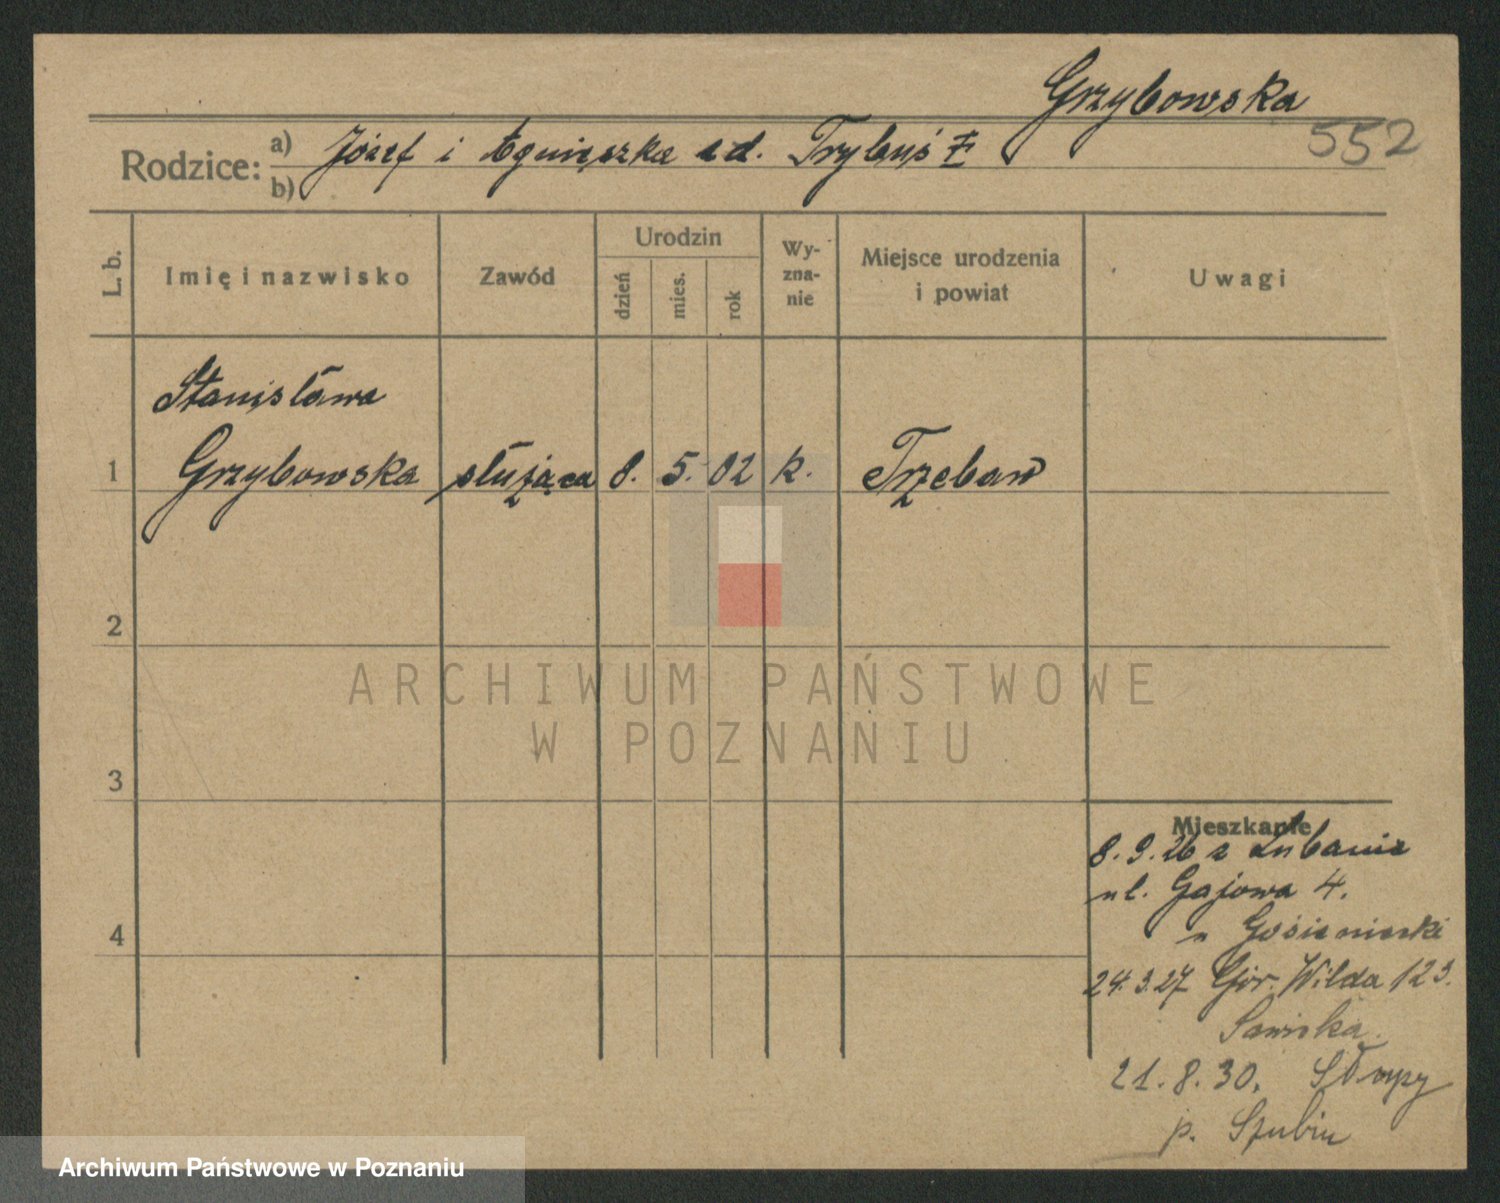 Grzybowska
552
Rodzice: a) Józef i Agnieszka z d. Trybuś
b)
L. b.
Imię i nazwisko
Zawód
Urodzin
dzień
mies.
rok
Wy-
zna-
nie
Miejsce urodzenia
i powiat
Uwagi
Stanisława
1 Grzybowska służąca 8. 5. 02 k. Trzebaw
2
3
4
Mieszkanie
8.9.26 z Lubania
ul. Gajowa 4.
24.3.27 Gór. Wilda 123.
21.8.30. Słupy
p. Szubin
ARCHIWUM PAŃSTWOWE
W POZNANIU
Archiwum Państwowe w Poznaniu